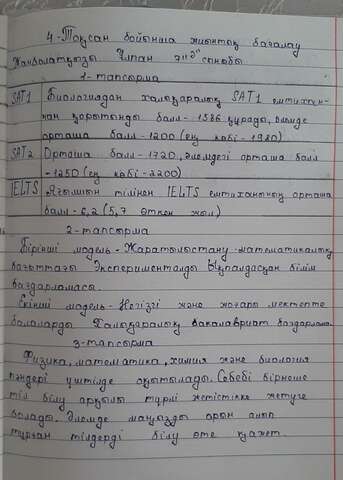 4-Тоқсан бойынша жиынтық бағалау
Жанболатқызы Ұлпан 7"Э" сыныбы
1-тапсырма
SAT1 Биологиядан халықаралық SAT1 емтихан-
нан қорытынды балл - 1586 құрады, әлемде
орташа балл - 1200 (ең көбі - 1980)
SAT2 Орташа балл - 1720, әлемдегі орташа балл
- 1250 (ең көбі - 2200)
IELTS Ағылшын тілінен IELTS емтиханының орташа
балл - 6,2 (5,7 өткен жыл)
2-тапсырма
Бірінші модель - Жаратылыстану-математикалық
бағыттағы Эксперименталды Ықпалдасқан білім
бағдарламасы.
Екінші модель - Негізгі және жоғары мектепте
балаларды Халықаралық бакалавриат бағдарлама
3-тапсырма
Физика, математика, химия және биология
пәндері үштілде оқытылады. Себебі бірнеше
тіл білу арқылы түрлі жетістікке жетуге
болады. Әлемде маңызды орын алып
тұрған тілдерді білу өте қажет.